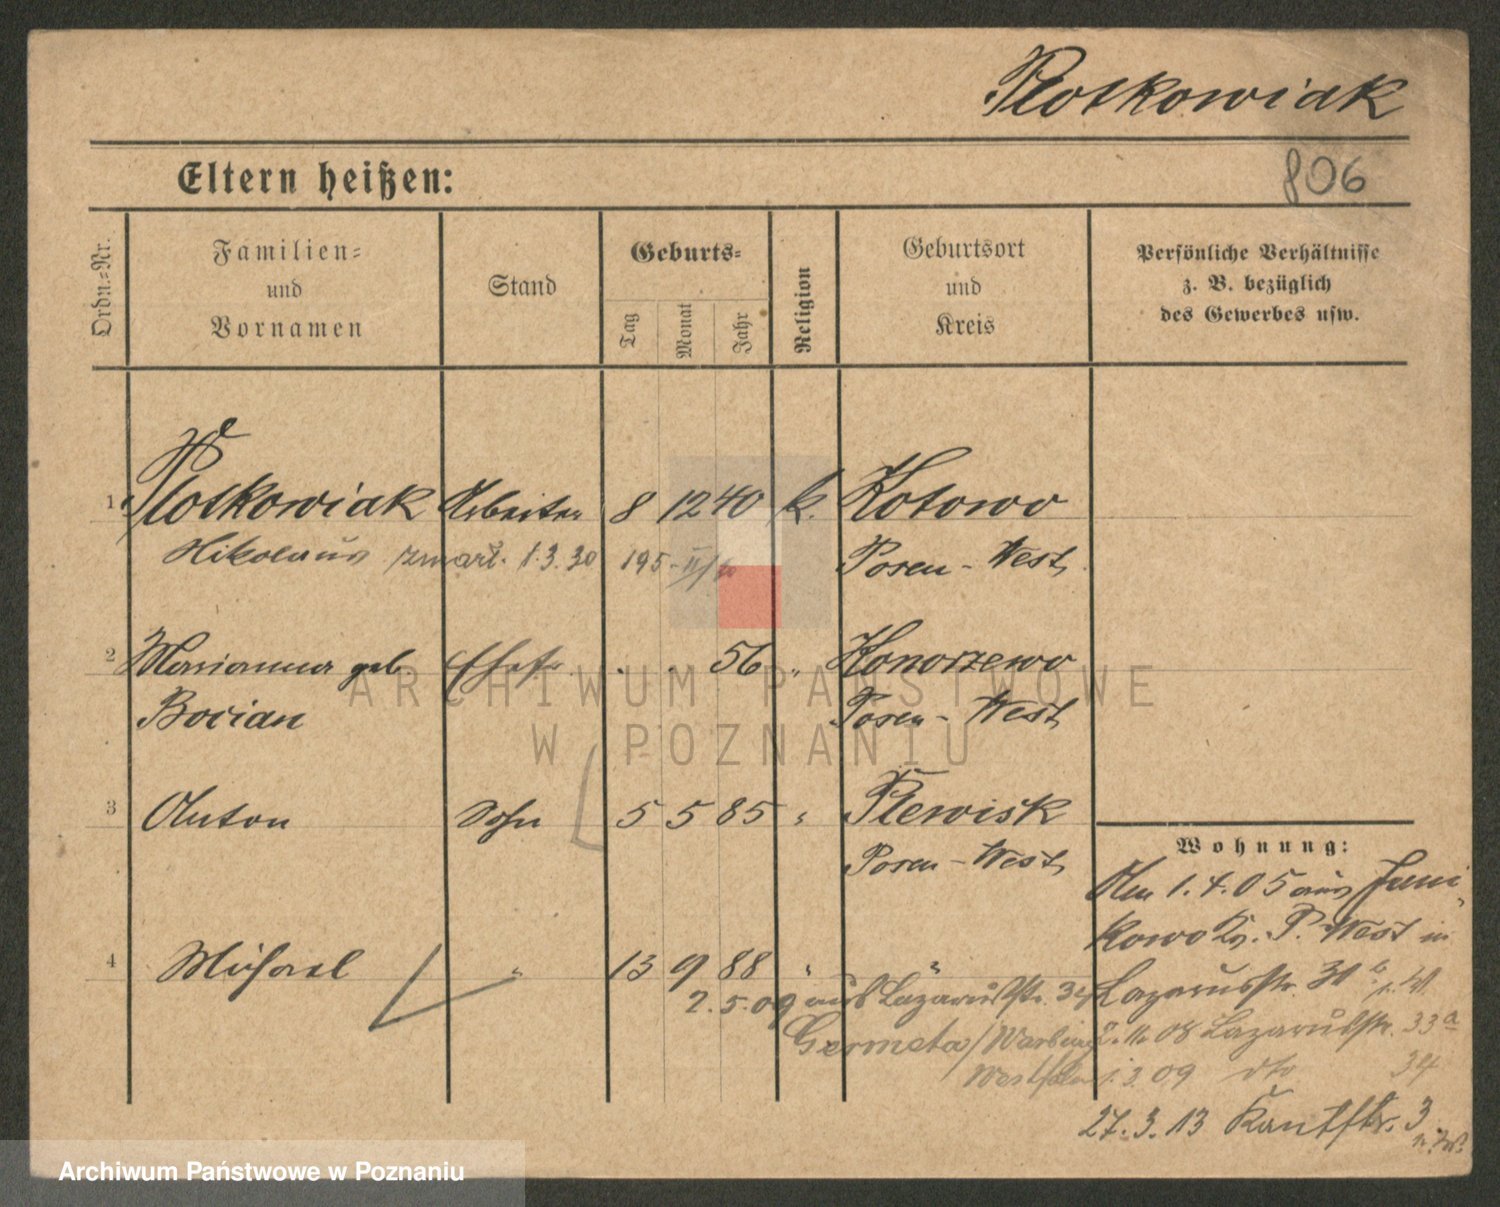 Plotkowiak
Eltern heißen:
806
Ordn.-Nr.
Familien-
und
Vornamen
Stand
Geburts-
Tag
Monat
Jahr
Religion
Geburtsort
und
Kreis
Persönliche Verhältnisse
z. B. bezüglich
des Gewerbes usw.
1 Plotkowiak Arbeiter 8 12 40 k. Kotowo
Nikolaus zmarł. 1.3.30 195-II/ Posen-West
2 Marianna geb Ehefr. . . 56 " Konorzewo
Bocian Posen-West
3 Anton Sohn 5 5 85 " Plewisk
Posen-West
Wohnung:
Am 1.4.05 aus Juni-
kowo Kr. P. West in
4 Michael " 13 9 88 " "
Lazarusstr. 31
2.5.09 aus Lazarusstr. 34
Germeta/Warburg
Westfalen
2.11.08 Lazarusstr. 33a
1.3.09 dto 34
27.3.13 Kantstr. 3
ARCHIWUM PAŃSTWOWE
W POZNANIU
Archiwum Państwowe w Poznaniu